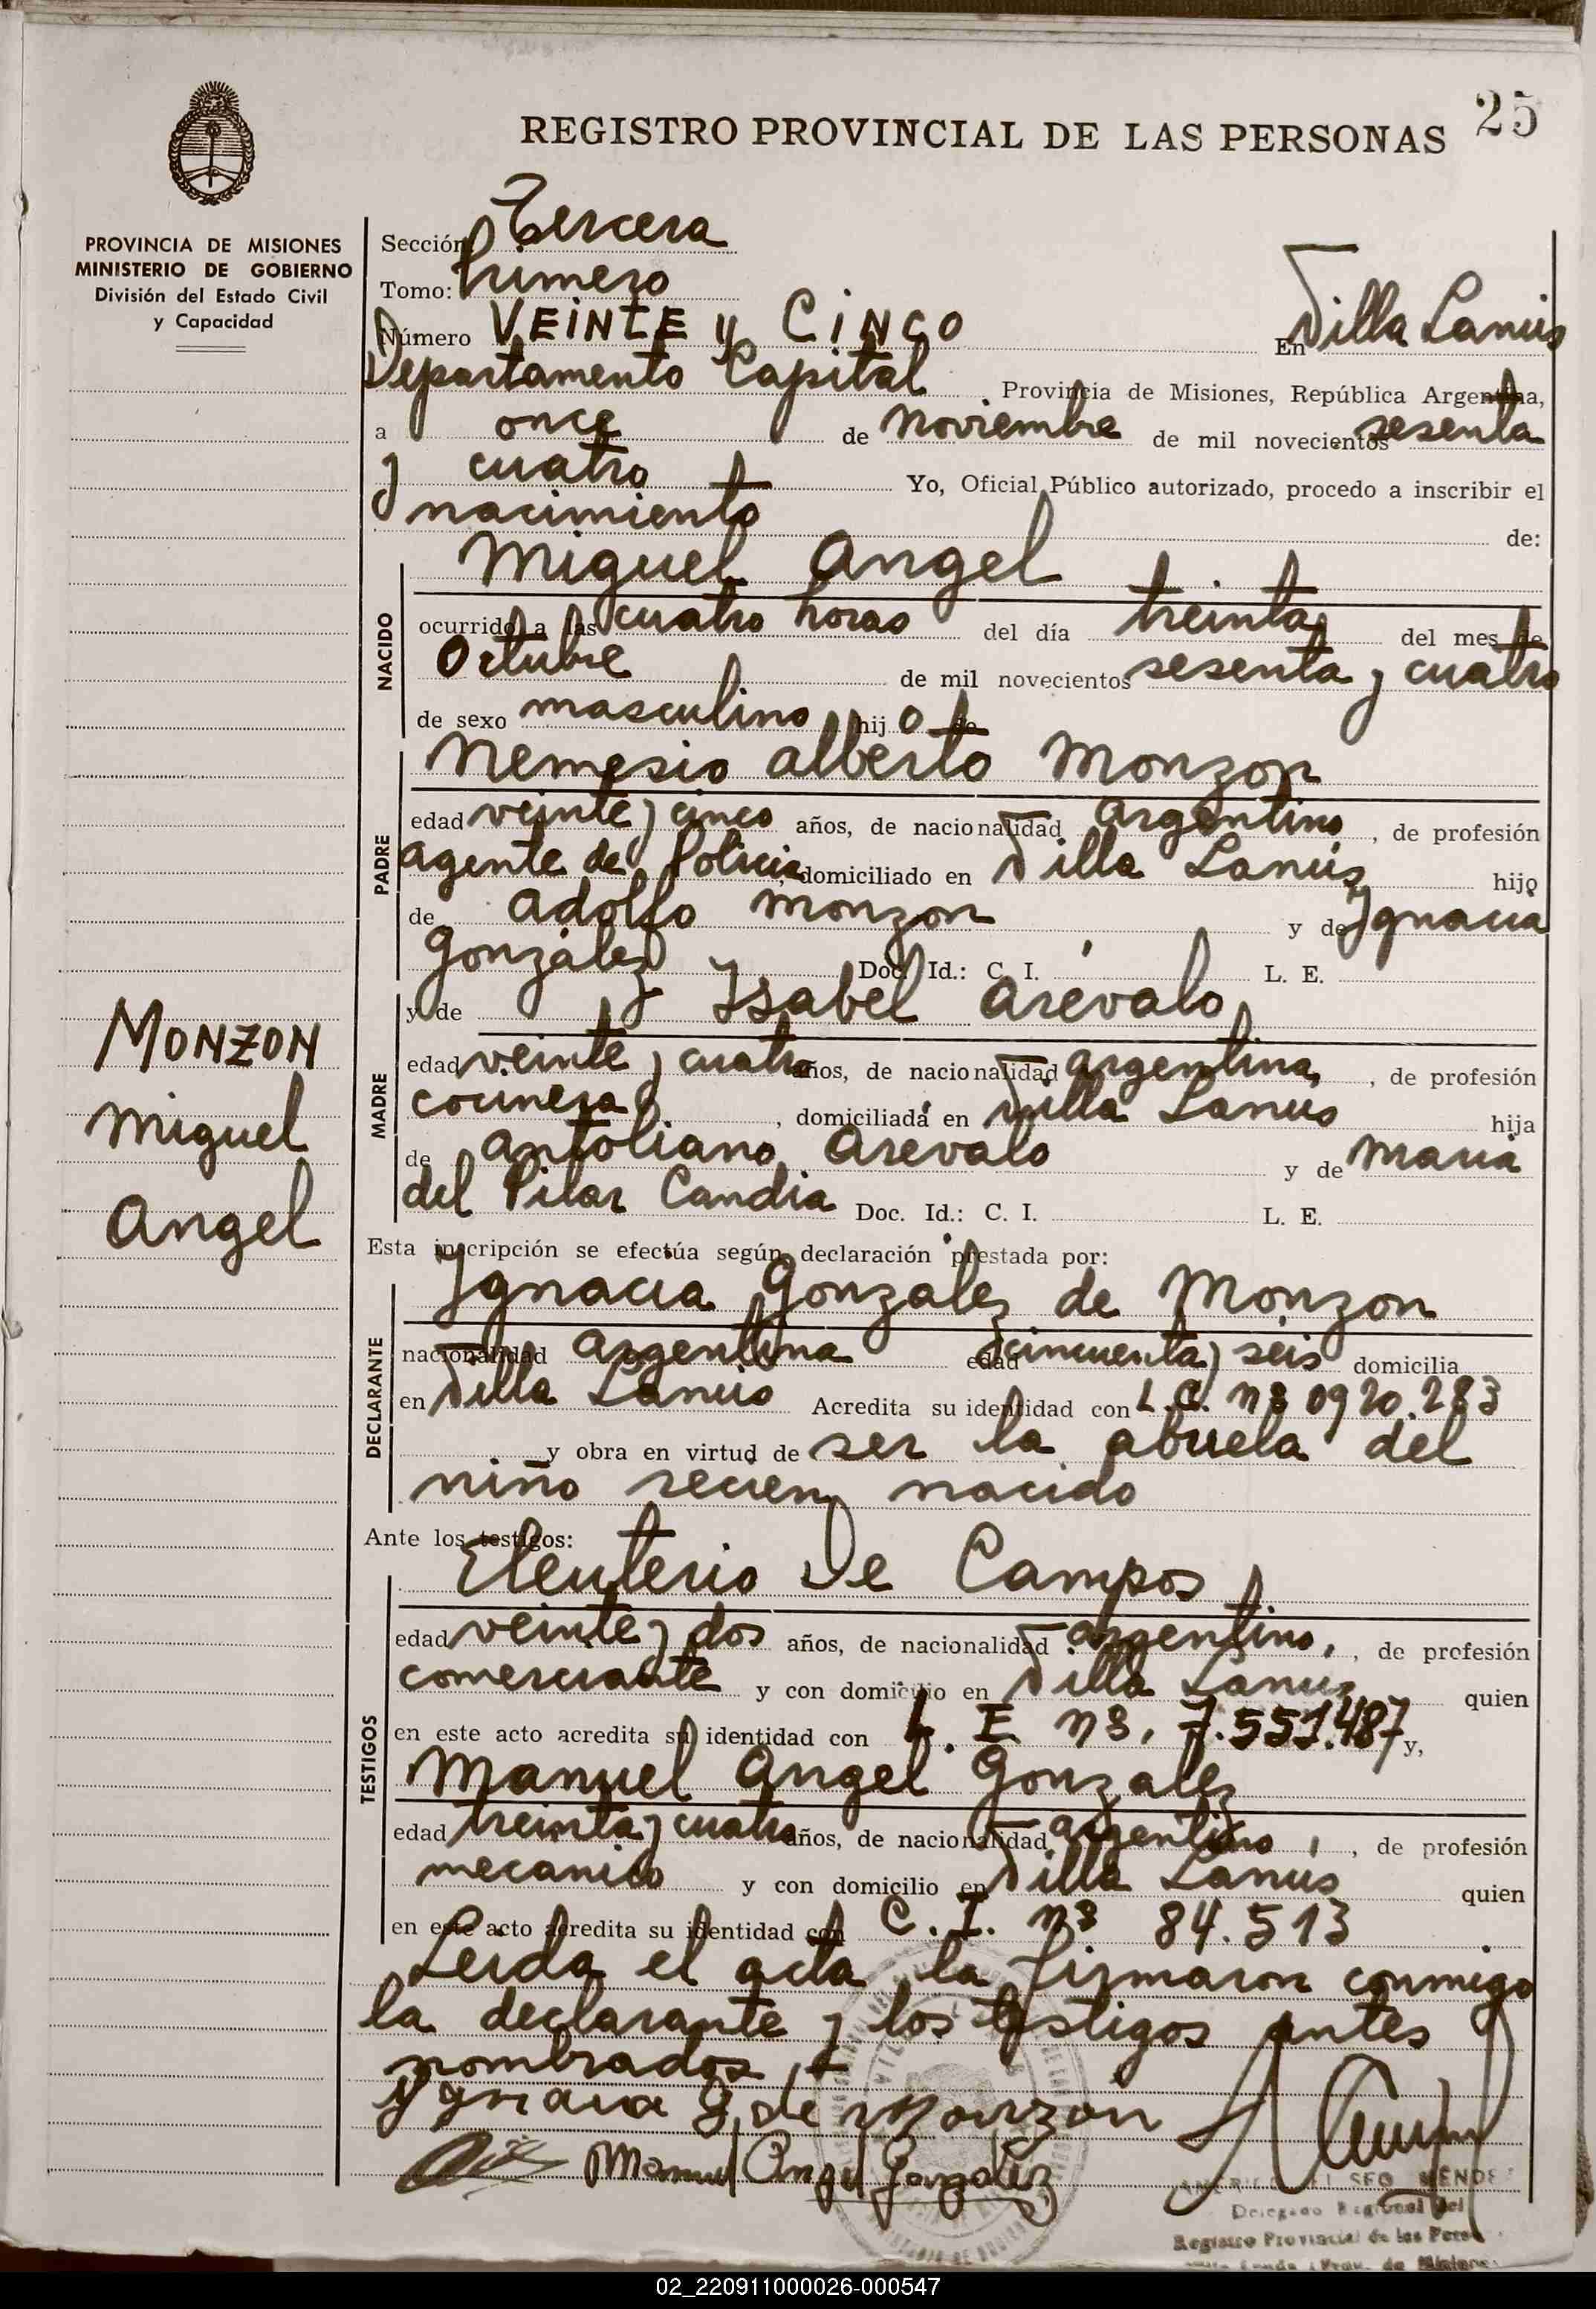 25
REGISTRO PROVINCIAL DE LAS PERSONAS
PROVINCIA DE MISIONES
MINISTERIO DE GOBIERNO
División del Estado Civil
y Capacidad
Sección Tercera
Tomo: Primero
Número VEINTE y CINCO En Villa Lanús
Departamento Capital Provincia de Misiones, República Argentina,
a once de Noviembre de mil novecientos sesenta
y cuatro Yo, Oficial Público autorizado, procedo a inscribir el
nacimiento de:
Miguel Angel
NACIDO
ocurrido a las cuatro horas del día treinta del mes de
Octubre de mil novecientos sesenta y cuatro
de sexo masculino hijo de
Nemesio Alberto Monzon
PADRE
edad veinte y cinco años, de nacionalidad Argentino, de profesión
agente de Policia domiciliado en Villa Lanús hijo
de Adolfo Monzon y de Ignacia
Gonzalez Doc. Id.: C. I. L. E.
y de Isabel Arevalo
MADRE
edad veinte y cuatro años, de nacionalidad argentina, de profesión
cocinera, domiciliada en Villa Lanus hija
de Antoliano Arevalo y de Maria
del Pilar Candia Doc. Id.: C. I. L. E.
MONZON
Miguel
Angel
Esta inscripción se efectúa según declaración prestada por:
Ignacia Gonzalez de Monzon
DECLARANTE
nacionalidad Argentina edad cincuenta y seis domicilia
en Villa Lanús Acredita su identidad con L.C. nº 0920.283
y obra en virtud de ser la abuela del
niño recien nacido
Ante los testigos:
Eleuterio De Campos
TESTIGOS
edad veinte y dos años, de nacionalidad argentino, de profesión
comerciante y con domicilio en Villa Lanus quien
en este acto acredita su identidad con L. E. nº. 7.551.487 y,
Manuel Angel Gonzalez
edad treinta y cuatro años, de nacionalidad argentino, de profesión
mecanico y con domicilio en Villa Lanus quien
en este acto acredita su identidad con C. I. nº 84.513
Leida el acta la firmaron conmigo
la declarante y los testigos antes
nombrados
Ygnacia G. de Monzon
Manuel Angel Gonzalez
Delegado Regional del
Registro Provincial de las
02_220911000026-000547